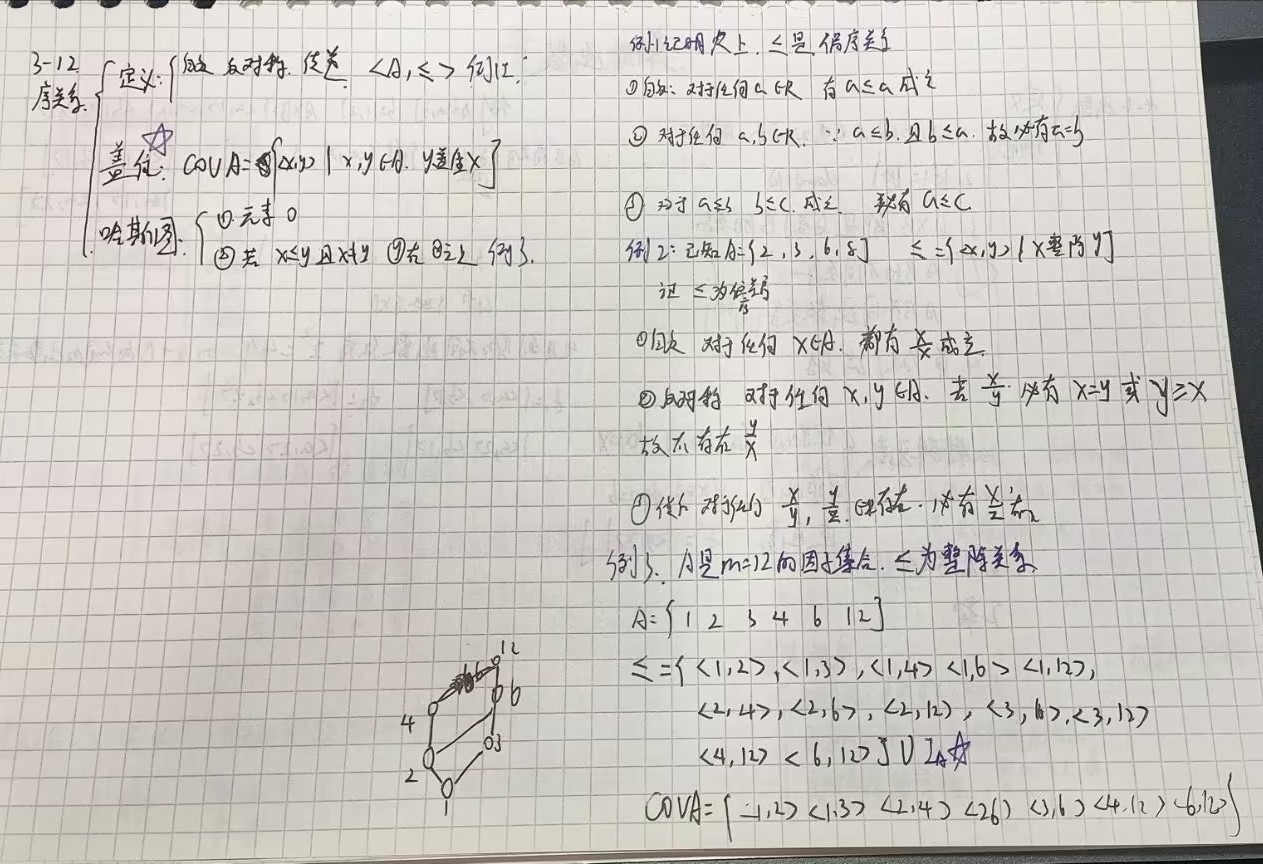 3-12
序关系
定义: 自反 反对称. 传递 <A, ≤> 例1:
盖住: COVA={<x,y> | x,y∈A. y盖住x}
哈斯图:
① 元素 o
② 若 x≤y 且x≠y ⓨ在ⓧ之上 例3.
例1:证明R上. ≤是偏序关系
① 自反: 对于任何a∈R 有a≤a成立
② 对于任何 a,b∈R. ∵ a≤b 且b≤a. 故必有a=b
③ 对于 a≤b b≤c. 成立 有 a≤c
例2: 已知A={2, 3, 6, 8} ≤={<x,y> | x整除y}
证 ≤为偏序
①自反 对于任何 x∈A. 都有 x/x 成立.
②反对称 对于任何 x,y∈A. 若 x/y 必有 x=y 或 y≥x
故不存在 y/x
③传 对于 x/y, y/z 存在. 必有 x/z
例3. A是m=12的因子集合. ≤为整除关系
A={1 2 3 4 6 12}
≤={<1,2>,<1,3>,<1,4> <1,6> <1,12>,
<2,4>,<2,6>,<2,12>, <3,6>,<3,12>
<4,12> <6,12>}∪I_A☆
COVA={<1,2> <1,3> <2,4> <26> <3,6> <4,12> <6,12>}
12
6
4
3
2
1